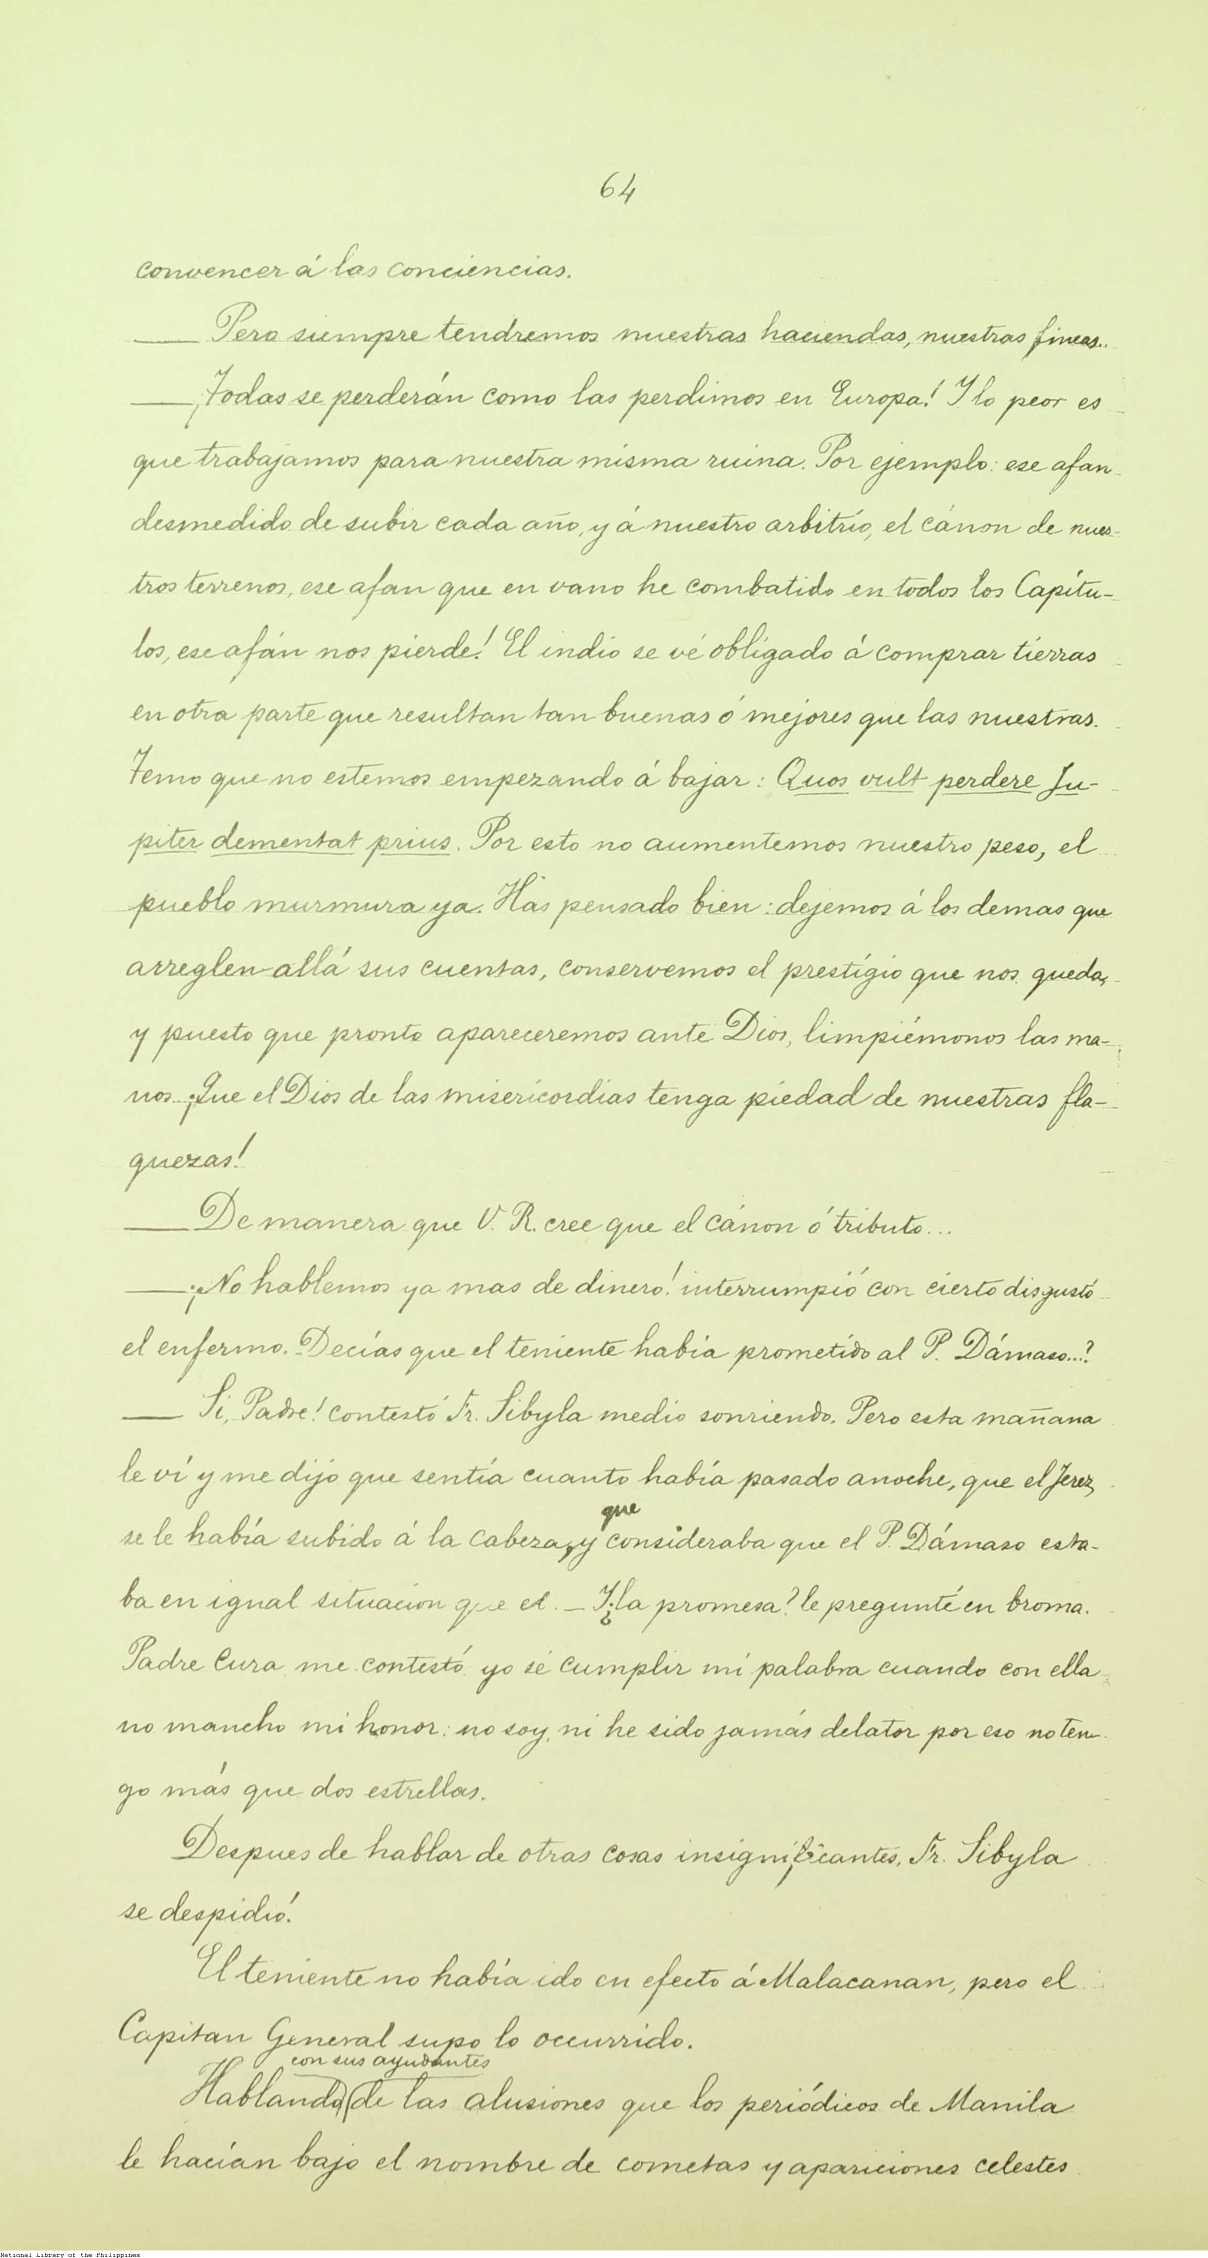 64
convencer á las conciencias.
— Pero siempre tendremos nuestras haciendas, nuestras fincas..
— ¡Todas se perderán como las perdimos en Europa! Y lo peor es
que trabajamos para nuestra misma ruina. Por ejemplo: ese afan
desmedido de subir cada año, y á nuestro arbitrio, el cánon de nues-
tros terrenos, ese afan que en vano he combatido en todos los Capítu-
los, ese afán nos pierde! El indio se vé obligado á comprar tierras
en otra parte que resultan tan buenas ó mejores que las nuestras.
Temo que no estemos empezando á bajar: Quos vult perdere Ju-
piter dementat prius. Por esto no aumentemos nuestro peso, el
pueblo murmura ya. Has pensado bien: dejemos á los demas que
arreglen allá sus cuentas, conservemos el prestígio que nos queda,
y puesto que pronto apareceremos ante Dios, limpiémonos las ma-
nos.. ¡Que el Dios de las misericordias tenga piedad de nuestras fla-
quezas!
— De manera que V. R. cree que el cánon ó tributo...
— ¡No hablemos ya mas de dinero! interrumpió con cierto disgusto
el enfermo. Decías que el teniente había prometido al P. Dámaso...?
— Si, Padre! contestó Fr. Sibyla medio sonriendo. Pero esta mañana
le ví y me dijo que sentía cuanto había pasado anoche, que el Jerez
se le había subido á la cabeza, y que consideraba que el P. Dámaso esta-
ba en igual situacion que el. — Y ¿la promesa? le pregunté en broma.
Padre Cura me contestó yo sé cumplir mi palabra cuando con ella
no mancho mi honor: no soy, ni he sido jamás delator por eso no ten-
go más que dos estrellas.
Despues de hablar de otras cosas insignificantes, Fr. Sibyla
se despidió.
El teniente no había ido en efecto á Malacanan, pero el
Capitan General supo lo occurrido.
con sus ayudantes
Hablando de las alusiones que los periódicos de Manila
le hacían bajo el nombre de cometas y apariciones celestes
National Library of the Philippines